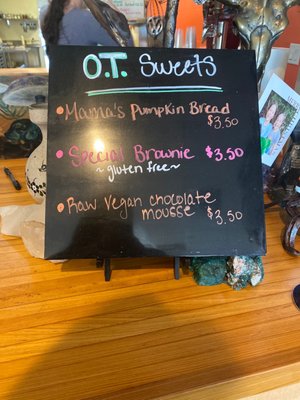 O.T. Sweets
• Mama's Pumpkin Bread
$3.50
• Special Brownie $3.50
~gluten free~
• Raw Vegan chocolate
mousse $3.50